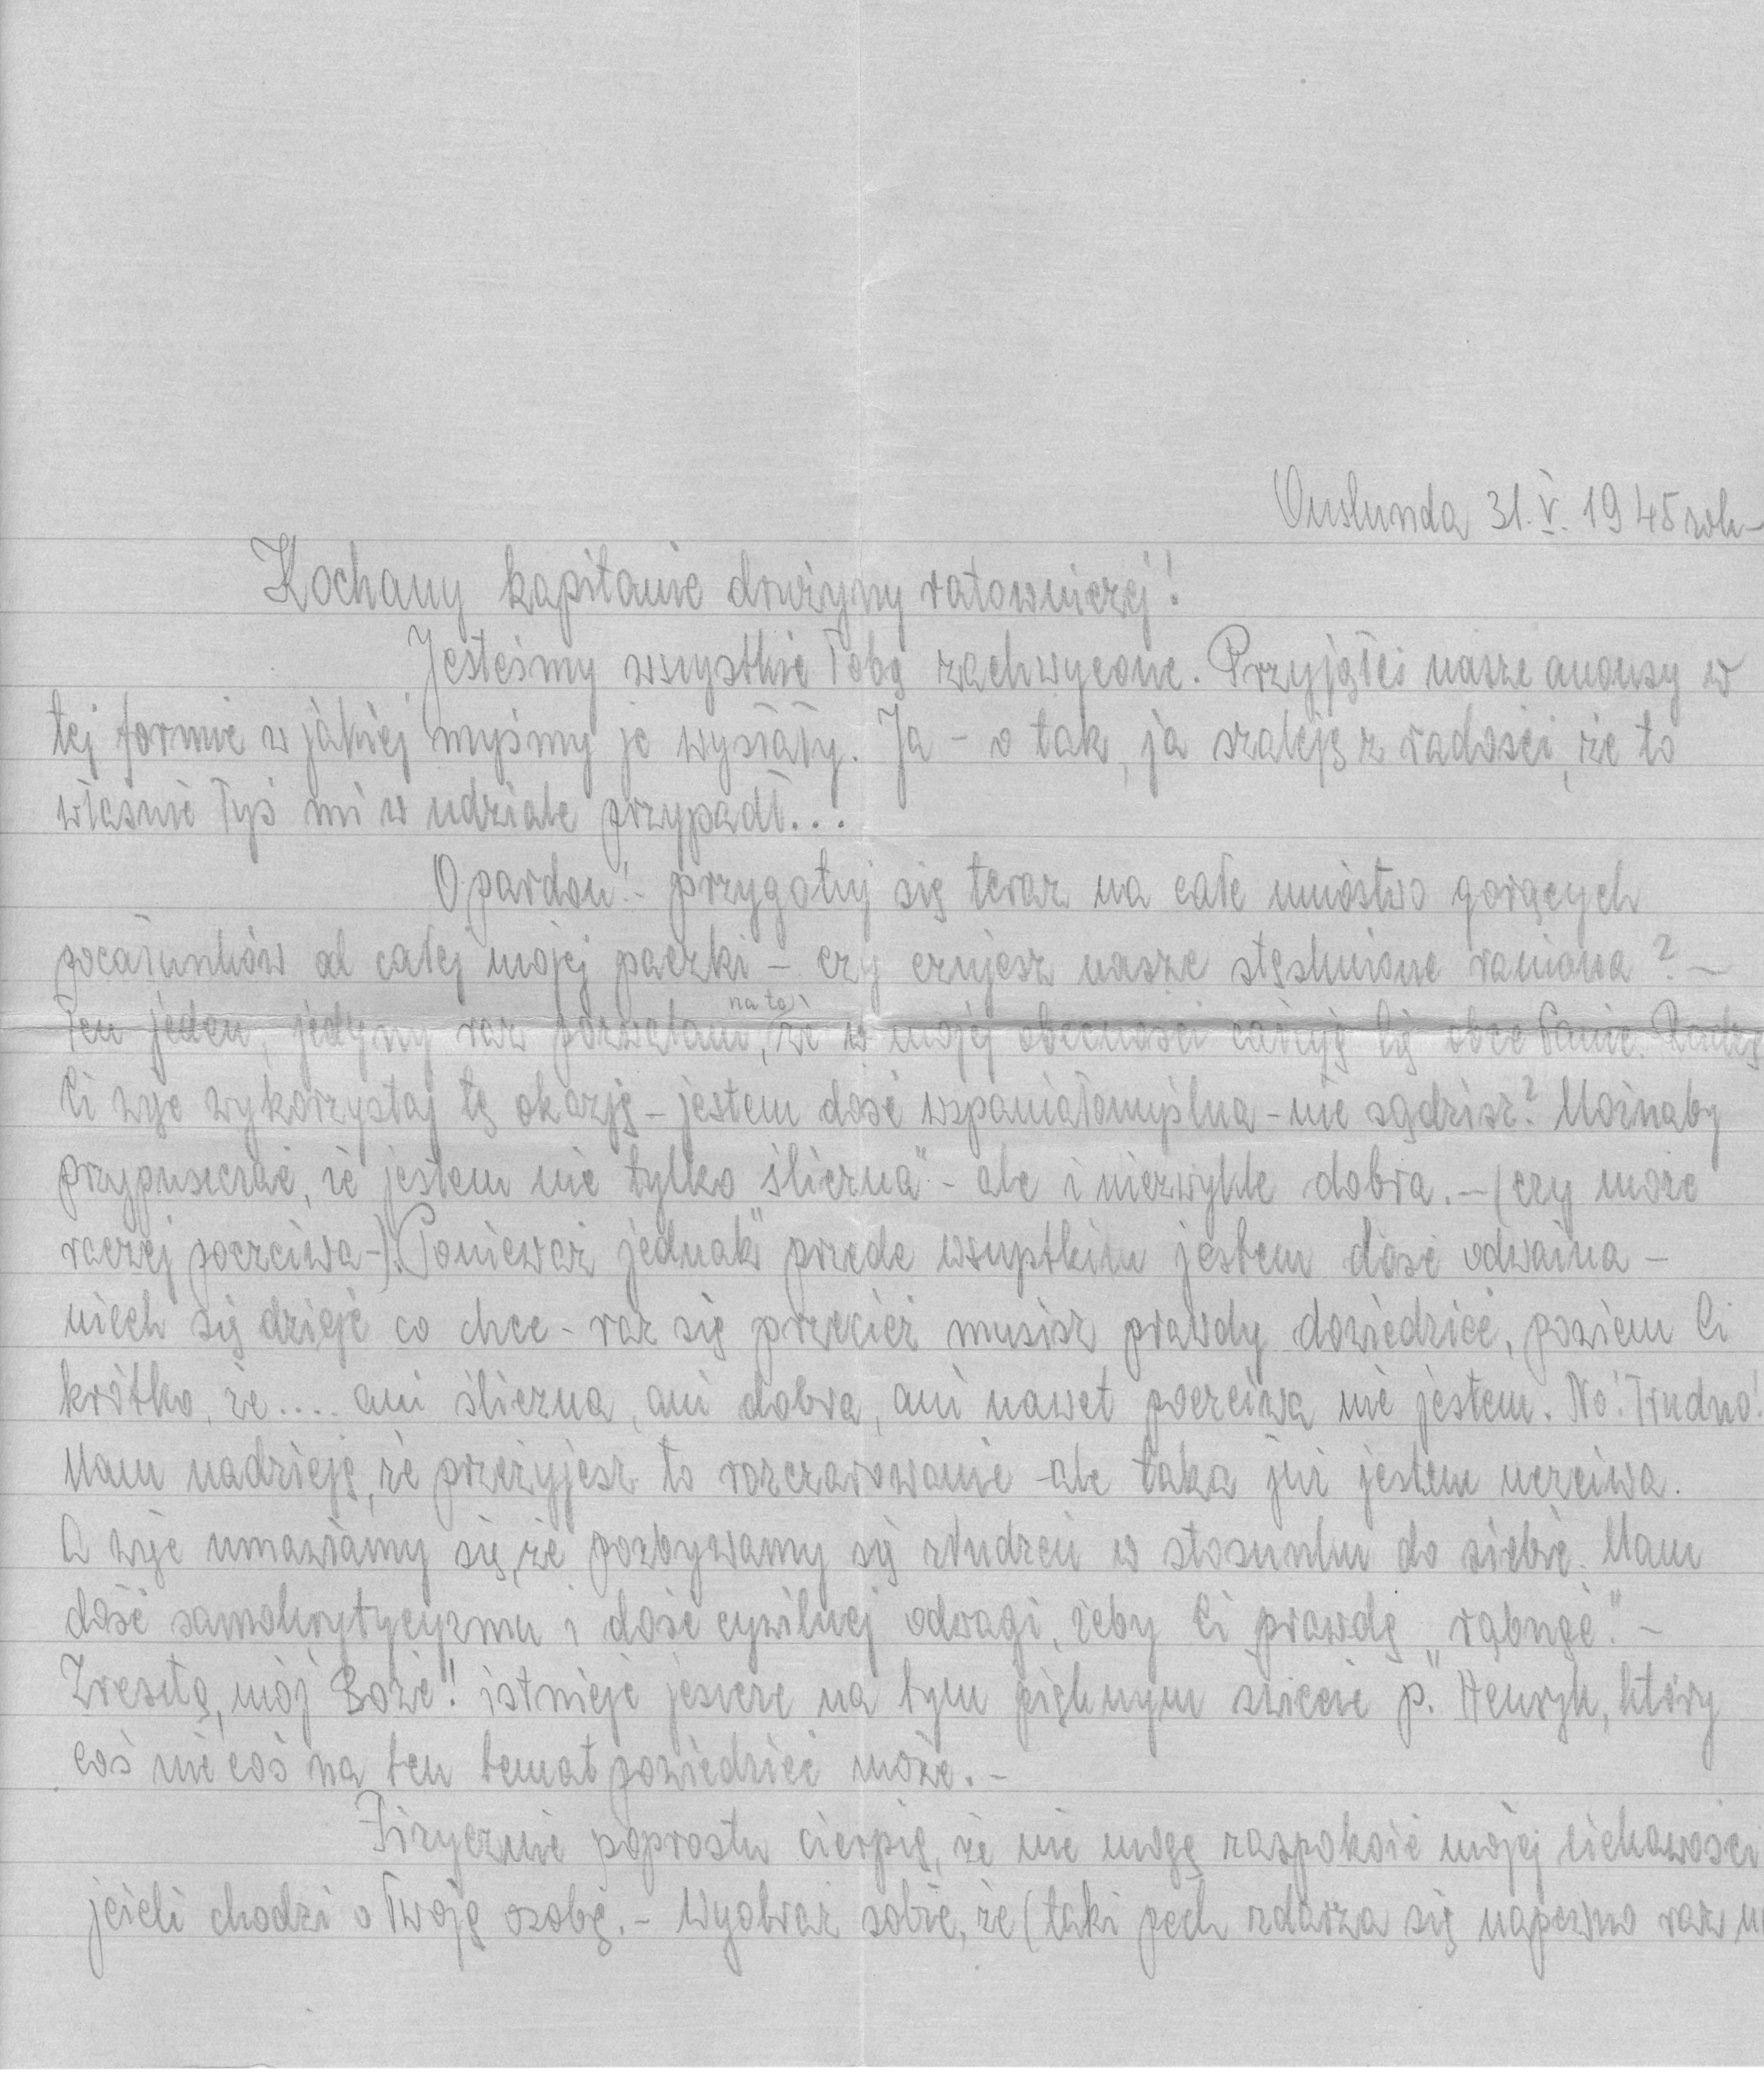 Öuslunda 31. V. 1945 rok-
Kochany kapitanie drużyny ratowniczej!
Jesteśmy wszystkie Tobą zachwycone. Przyjąłeś nasze anonsy w
tej formie w jakiej myśmy je wysłały. Ja - o tak, ja szaleję z radości, że to
właśnie Tyś mi w udziale przypadł...
O pardon! - przygotuj się teraz na całe mnóstwo gorących
pocałunków od całej mojej paczki - czy czujesz nasze stęsknione ramiona? -
Ten jeden, jedyny raz pozwalam na to, że w mojej obecności całują Cię obce Panie. Radzę
Ci więc wykorzystaj tę okazję - jestem dość wspaniałomyślna - nie sądzisz? Możnaby
przypuszczać, że jestem nie tylko śliczna" - ale i niezwykle dobra. - (czy może
raczej poczciwa -). Ponieważ jednak" przede wszystkim jestem dość odważna -
niech się dzieje co chce - raz się przecież musisz prawdy dowiedzieć, powiem Ci
krótko, że.... ani śliczna, ani dobra, ani nawet poczciwa nie jestem. No! Trudno!
Mam nadzieję, że przeżyjesz to rozczarowanie - ale taka już jestem uczciwa.
A więc umawiamy się, że pozbywamy się złudzeń w stosunku do siebie. Mam
dość samokrytycyzmu i dość cywilnej odwagi, żeby Ci prawdę „rąbnąć". -
Zresztą, mój Boże! istnieje jeszcze na tym pięknym świecie p." Henryk, który
coś nie coś na ten temat powiedzieć może. -
Fizycznie poprostu cierpię, że nie mogę zaspokoić mojej ciekawości
jeżeli chodzi o Twoją osobę. - Wyobraź sobie, że (taki pech zdarza się napewno raz na